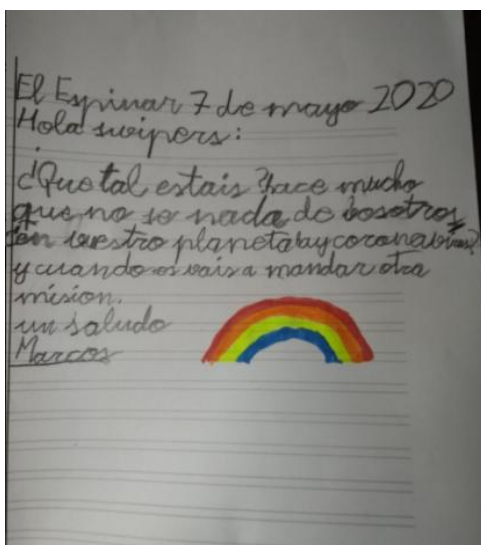 El Espinar 7 de mayo 2020
Hola swipers:
¿Que tal estais? hace mucho
que no se nada de bosotros
¿en vuestro planeta ay coronavirus?
y cuando os vais a mandar otra
mision.
un saludo
Marcos